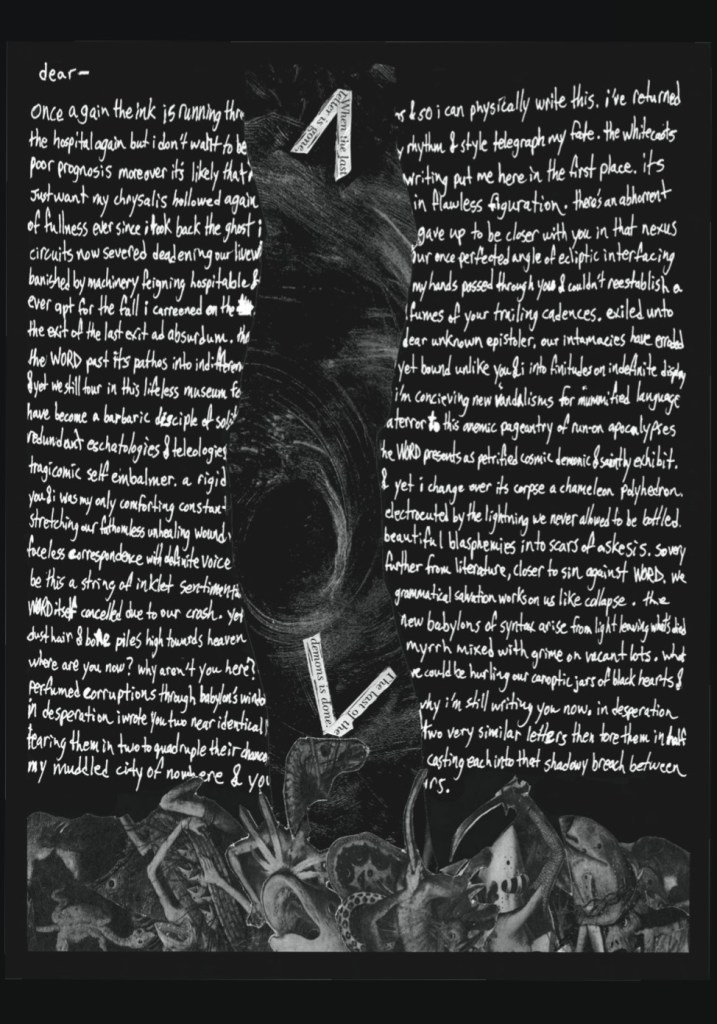 dear—
once again the ink is running thr
the hospital again but i don't want to be
poor prognosis moreover it's likely that
Just want my chrysalis hollowed again
of fullness ever since i took back the ghost i
circuits now severed deadening our livew
banished by machinery feigning hospitable &
ever apt for the fall i careened on the
the exit of the last exit ad absurdum. th
the WORD past its pathos into indifferen
& yet we still tour in this lifeless museum fo
have become a barbaric disciple of soli
redundant eschatologies & teleologies
tragicomic self embalmer. a rigid
you & i was my only comforting constan
stretching our fathomless unhealing wound
faceless correspondence with definite voice
be this a string of inklet sentimen
WORD itself cancelled due to our crash. yet
dust hair & bone piles high towards heaven
where are you now? why aren't you here?
perfumed corruptions through babylon's windo
in desperation i wrote you two near identical
tearing them in two to quadruple their chance
my muddled city of nowhere & you
When the last
letter is gone.
demons is done.
The last of the
s & so i can physically write this. i've returned
rhythm & style telegraph my fate. the whitecoats
writing put me here in the first place. it's
in flawless figuration. there's an abhorrent
gave up to be closer with you in that nexus
our once perfected angle of ecliptic interfacing
my hands passed through you & couldn't reestablish a
fumes of your trailing cadences. exiled unto
dear unknown epistoler, our intamacies have eroded
yet bound unlike you & i into finitudes on indefinite display
i'm concieving new vandalisms for mummified language
a terror to this anemic pageantry of run-on apocalypses
the WORD presents as petrified cosmic demonic & saintly exhibit.
& yet i change over its corpse a chameleon polyhedron.
electrocuted by the lightning we never allowed to be bottled.
beautiful blasphemies into scars of askesis. so very
further from literature, closer to sin against WORD. we
grammatical salvation works on us like collapse. the
new babylons of syntax arise from light leaving what's died
myrrh mixed with grime on vacant lots. what
we could be hurling our canoptic jars of black hearts &
why i'm still writing you now. in desperation
two very similar letters then tore them in half
casting each into that shadowy breach between
rs.